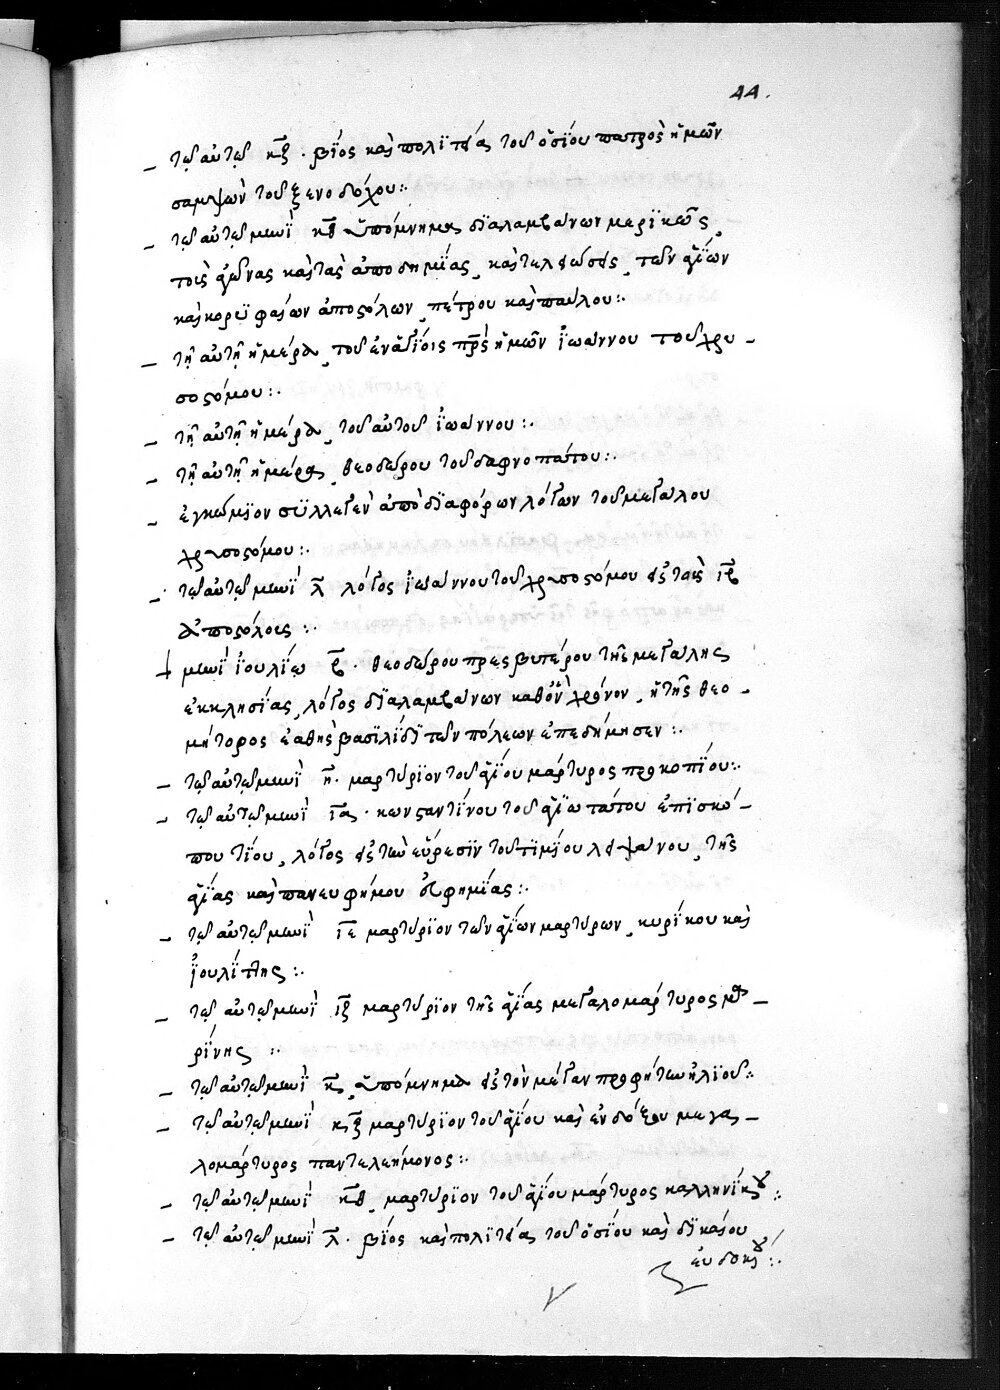 44.
– τῷ αὐτῷ κζ̅ · βίος καὶ πολιτεία τοῦ ὁσίου πατρὸς ἡμῶν
σαμψὼν τοῦ ξενοδόχου :·
– τῷ αὐτῷ μηνὶ κθ̅ ὑπόμνημα διαλαμβάνων μερικῶς,
τοὺς ἀγῶνας καὶ τὰς ἀποδημίας, καὶ τελειώσεις, τῶν ἁγίων
καὶ κορυφαίων ἀποστόλων, πέτρου καὶ παύλου :·
– τῇ αὐτῇ ἡμέρα, τοῦ ἐν ἁγίοις πρ̅ς ἡμῶν ἰωάννου τοῦ χρυ –
σοστόμου :·
– τῇ αὐτῇ ἡμέρα, τοῦ αὐτοῦ ἰωάννου :·
– τῇ αὐτῇ ἡμέρα, θεοδώρου τοῦ δαφνοπάτου :·
– ἐγκώμιον συλλεγὲν ἀπὸ διαφόρων λόγων τοῦ μεγάλου
χρυσοστόμου :·
– τῷ αὐτῷ μηνὶ λ̅ λόγος ἰωάννου τοῦ χρυσοστόμου εἰς τοὺς ιβ̅
ἀποστόλους :·
+ μηνὶ ἰουλίῳ β̅ · θεοδώρου πρεσβυτέρου τῆς μεγάλης
ἐκκλησίας, λόγος διαλαμβάνων καθ' ὃν χρόνον, ἡ τῆς θεο –
μήτορος ἐσθὴς βασιλίδι τῶν πόλεων ἐπεδήμησεν :·
– τῷ αὐτῷ μηνὶ η̅ · μαρτύριον τοῦ ἁγίου μάρτυρος προκοπίου :·
– τῷ αὐτῷ μηνὶ ια̅ · κωνσταντίνου τοῦ ἁγιωτάτου ἐπισκό –
που τίου, λόγος εἰς τὴν εὕρεσιν τοῦ τιμίου λειψάνου, τῆς
ἁγίας καὶ πανευφήμου εὐφημίας :·
– τῷ αὐτῷ μηνὶ ιε̅ μαρτύριον τῶν ἁγίων μαρτύρων, κυρίκου καὶ
ἰουλίττης :·
– τῷ αὐτῷ μηνὶ ιζ̅ μαρτύριον τῆς ἁγίας μεγαλομάρτυρος μα –
ρίνης :·
– τῷ αὐτῷ μηνὶ κ̅, ὑπόμνημα εἰς τὸν μέγαν προφήτην ἠλιοῦ :·
– τῷ αὐτῷ μηνὶ κζ̅ μαρτύριον τοῦ ἁγίου καὶ ἐνδόξου μεγα –
λομάρτυρος παντελεήμονος :·
– τῷ αὐτῷ μηνὶ κθ̅, μαρτύριον τοῦ ἁγίου μάρτυρος καλλινίκου :·
– τῷ αὐτῷ μηνὶ λ̅ · βίος καὶ πολιτεία τοῦ ὁσίου καὶ δικαίου
εὐδοκίμου :·